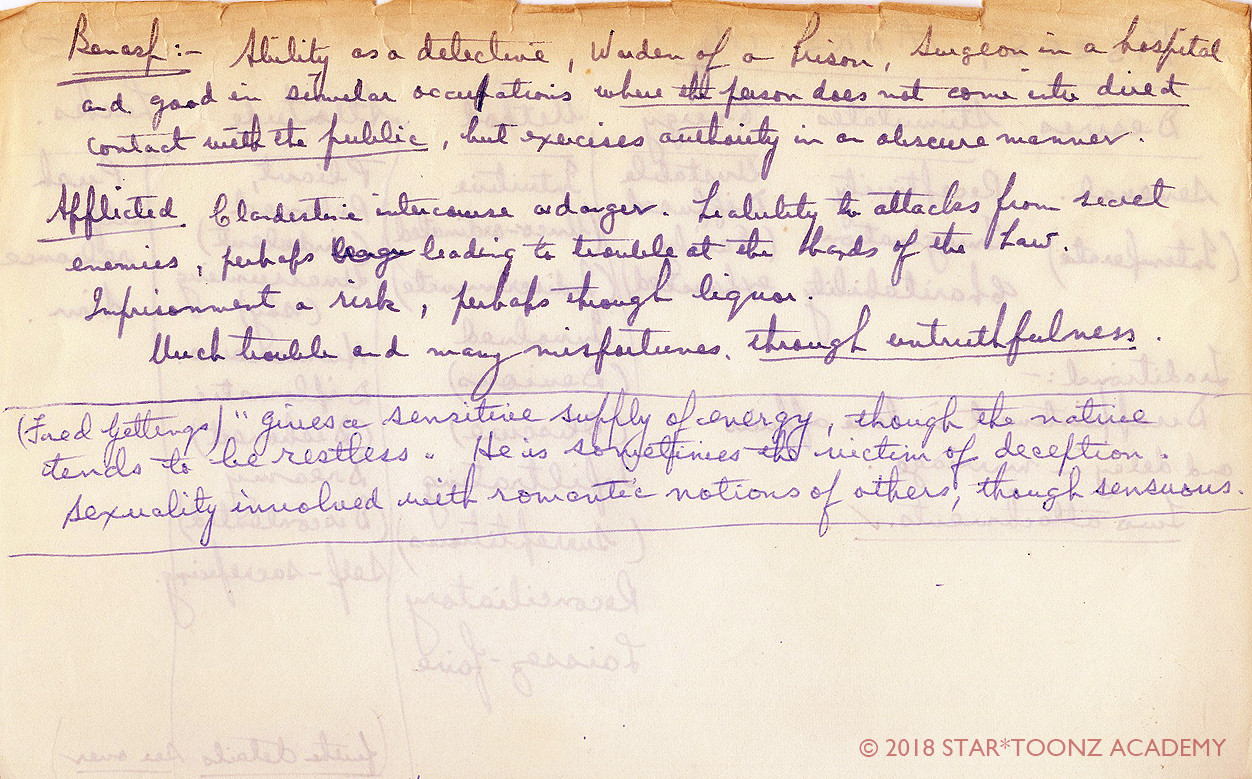 Benef :- Ability as a detective, Warden of a Prison, Surgeon in a hospital
and good in similar occupations where the person does not come into direct
contact with the public, but exercises authority in an obscure manner.
Afflicted. Clandestine intercourse a danger. Liability to attacks from secret
enemies, perhaps leading to trouble at the hands of the Law.
Imprisonment a risk, perhaps through liquor.
Much trouble and many misfortunes, through untruthfulness.
(Fred Gettings) "Gives a sensitive supply of energy, though the native
tends to be restless". He is sometimes the victim of deception.
Sexuality involved with romantic notions of others, though sensuous.
Reconciliatory
Laissez-faire
self-sacrificing.
(further details see over
© 2018 STAR*TOONZ ACADEMY